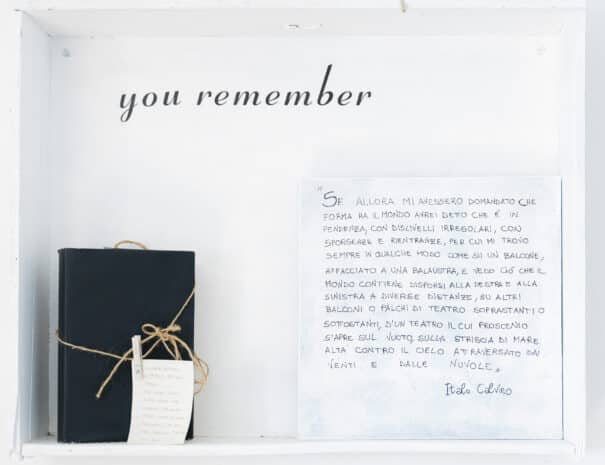 you remember
"SE ALLORA MI AVESSERO DOMANDATO CHE
FORMA HA IL MONDO AVREI DETTO CHE È IN
PENDENZA, CON DISLIVELLI IRREGOLARI, CON
SPORGENZE E RIENTRANZE, PER CUI MI TROVO
SEMPRE IN QUALCHE MODO COME SU UN BALCONE,
AFFACCIATO A UNA BALAUSTRA, E VEDO CIÒ CHE IL
MONDO CONTIENE DISPORSI ALLA DESTRA E ALLA
SINISTRA A DIVERSE DISTANZE, SU ALTRI
BALCONI O PALCHI DI TEATRO SOPRASTANTI O
SOTTOSTANTI, D'UN TEATRO IL CUI PROSCENIO
S'APRE SUL VUOTO, SULLA STRISCIA DI MARE
ALTA CONTRO IL CIELO ATTRAVERSATO DAI
VENTI E DALLE NUVOLE"
Italo Calvino